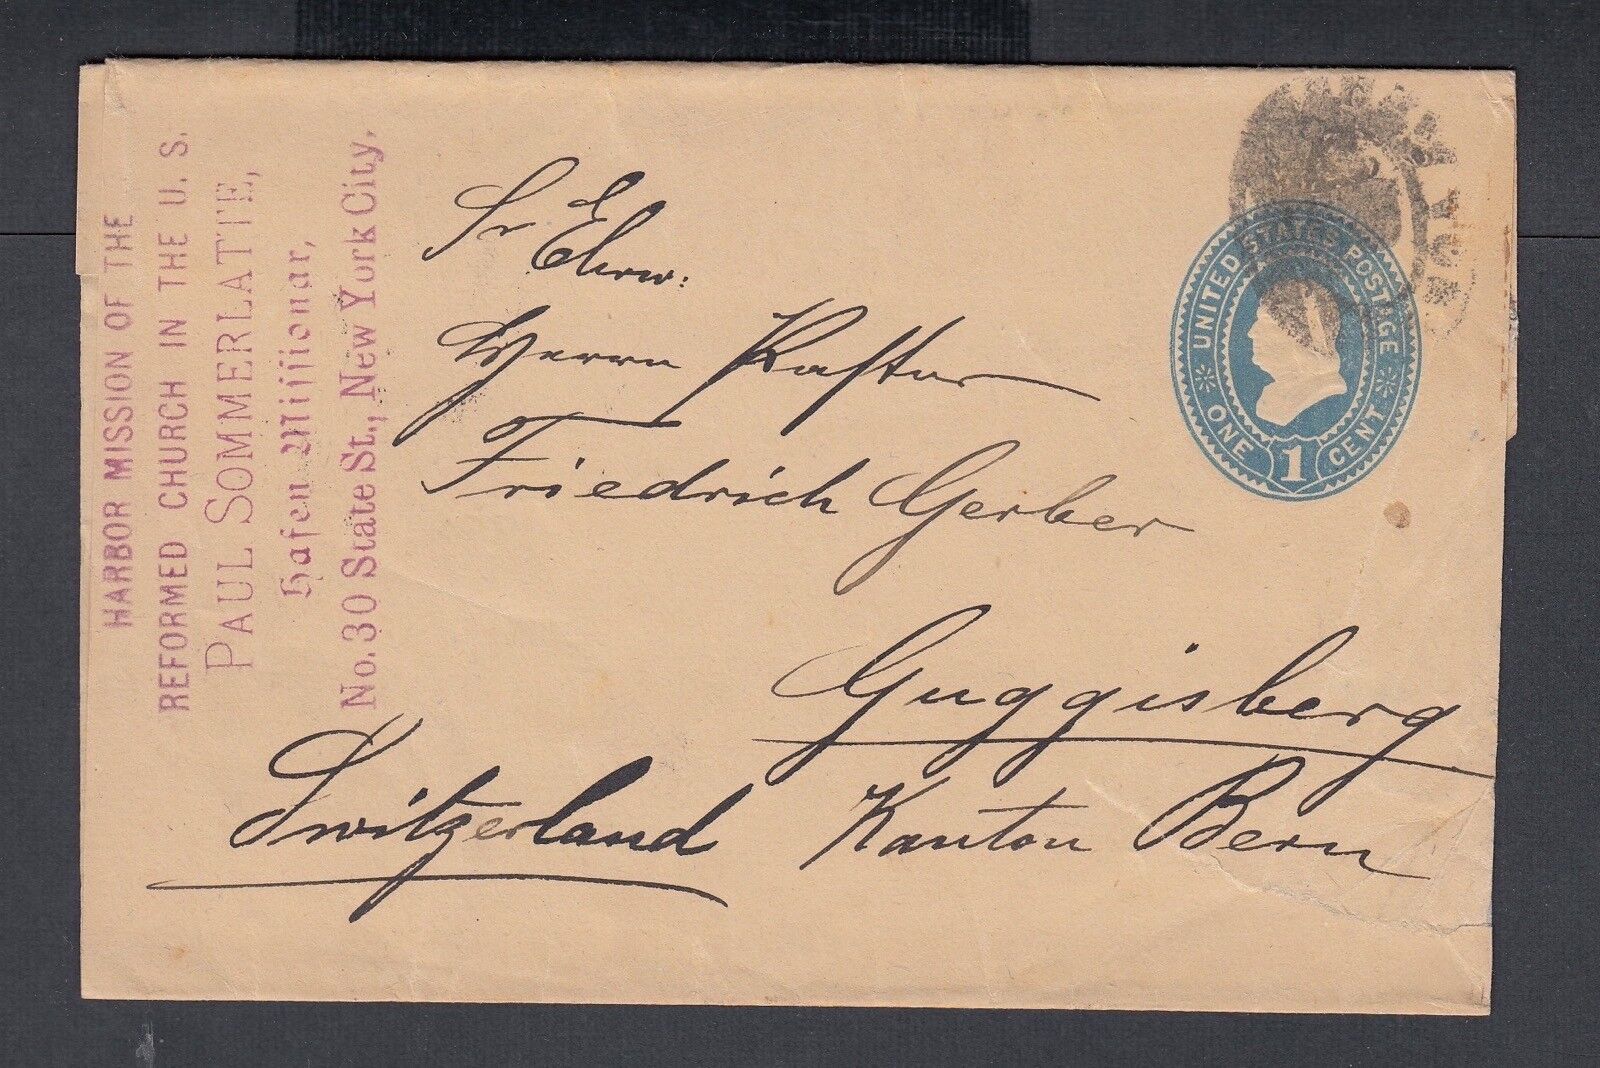 HARBOR MISSION OF THE
REFORMED CHURCH IN THE U. S.
PAUL SOMMERLATTE,
Hafen-Missionar,
No. 30 State St., New York City,
Sr Ehrw:
Herrn Pastor
Friedrich Gerber
Guggisberg
Kanton Bern
Switzerland
UNITED STATES POSTAGE
ONE 1 CENT